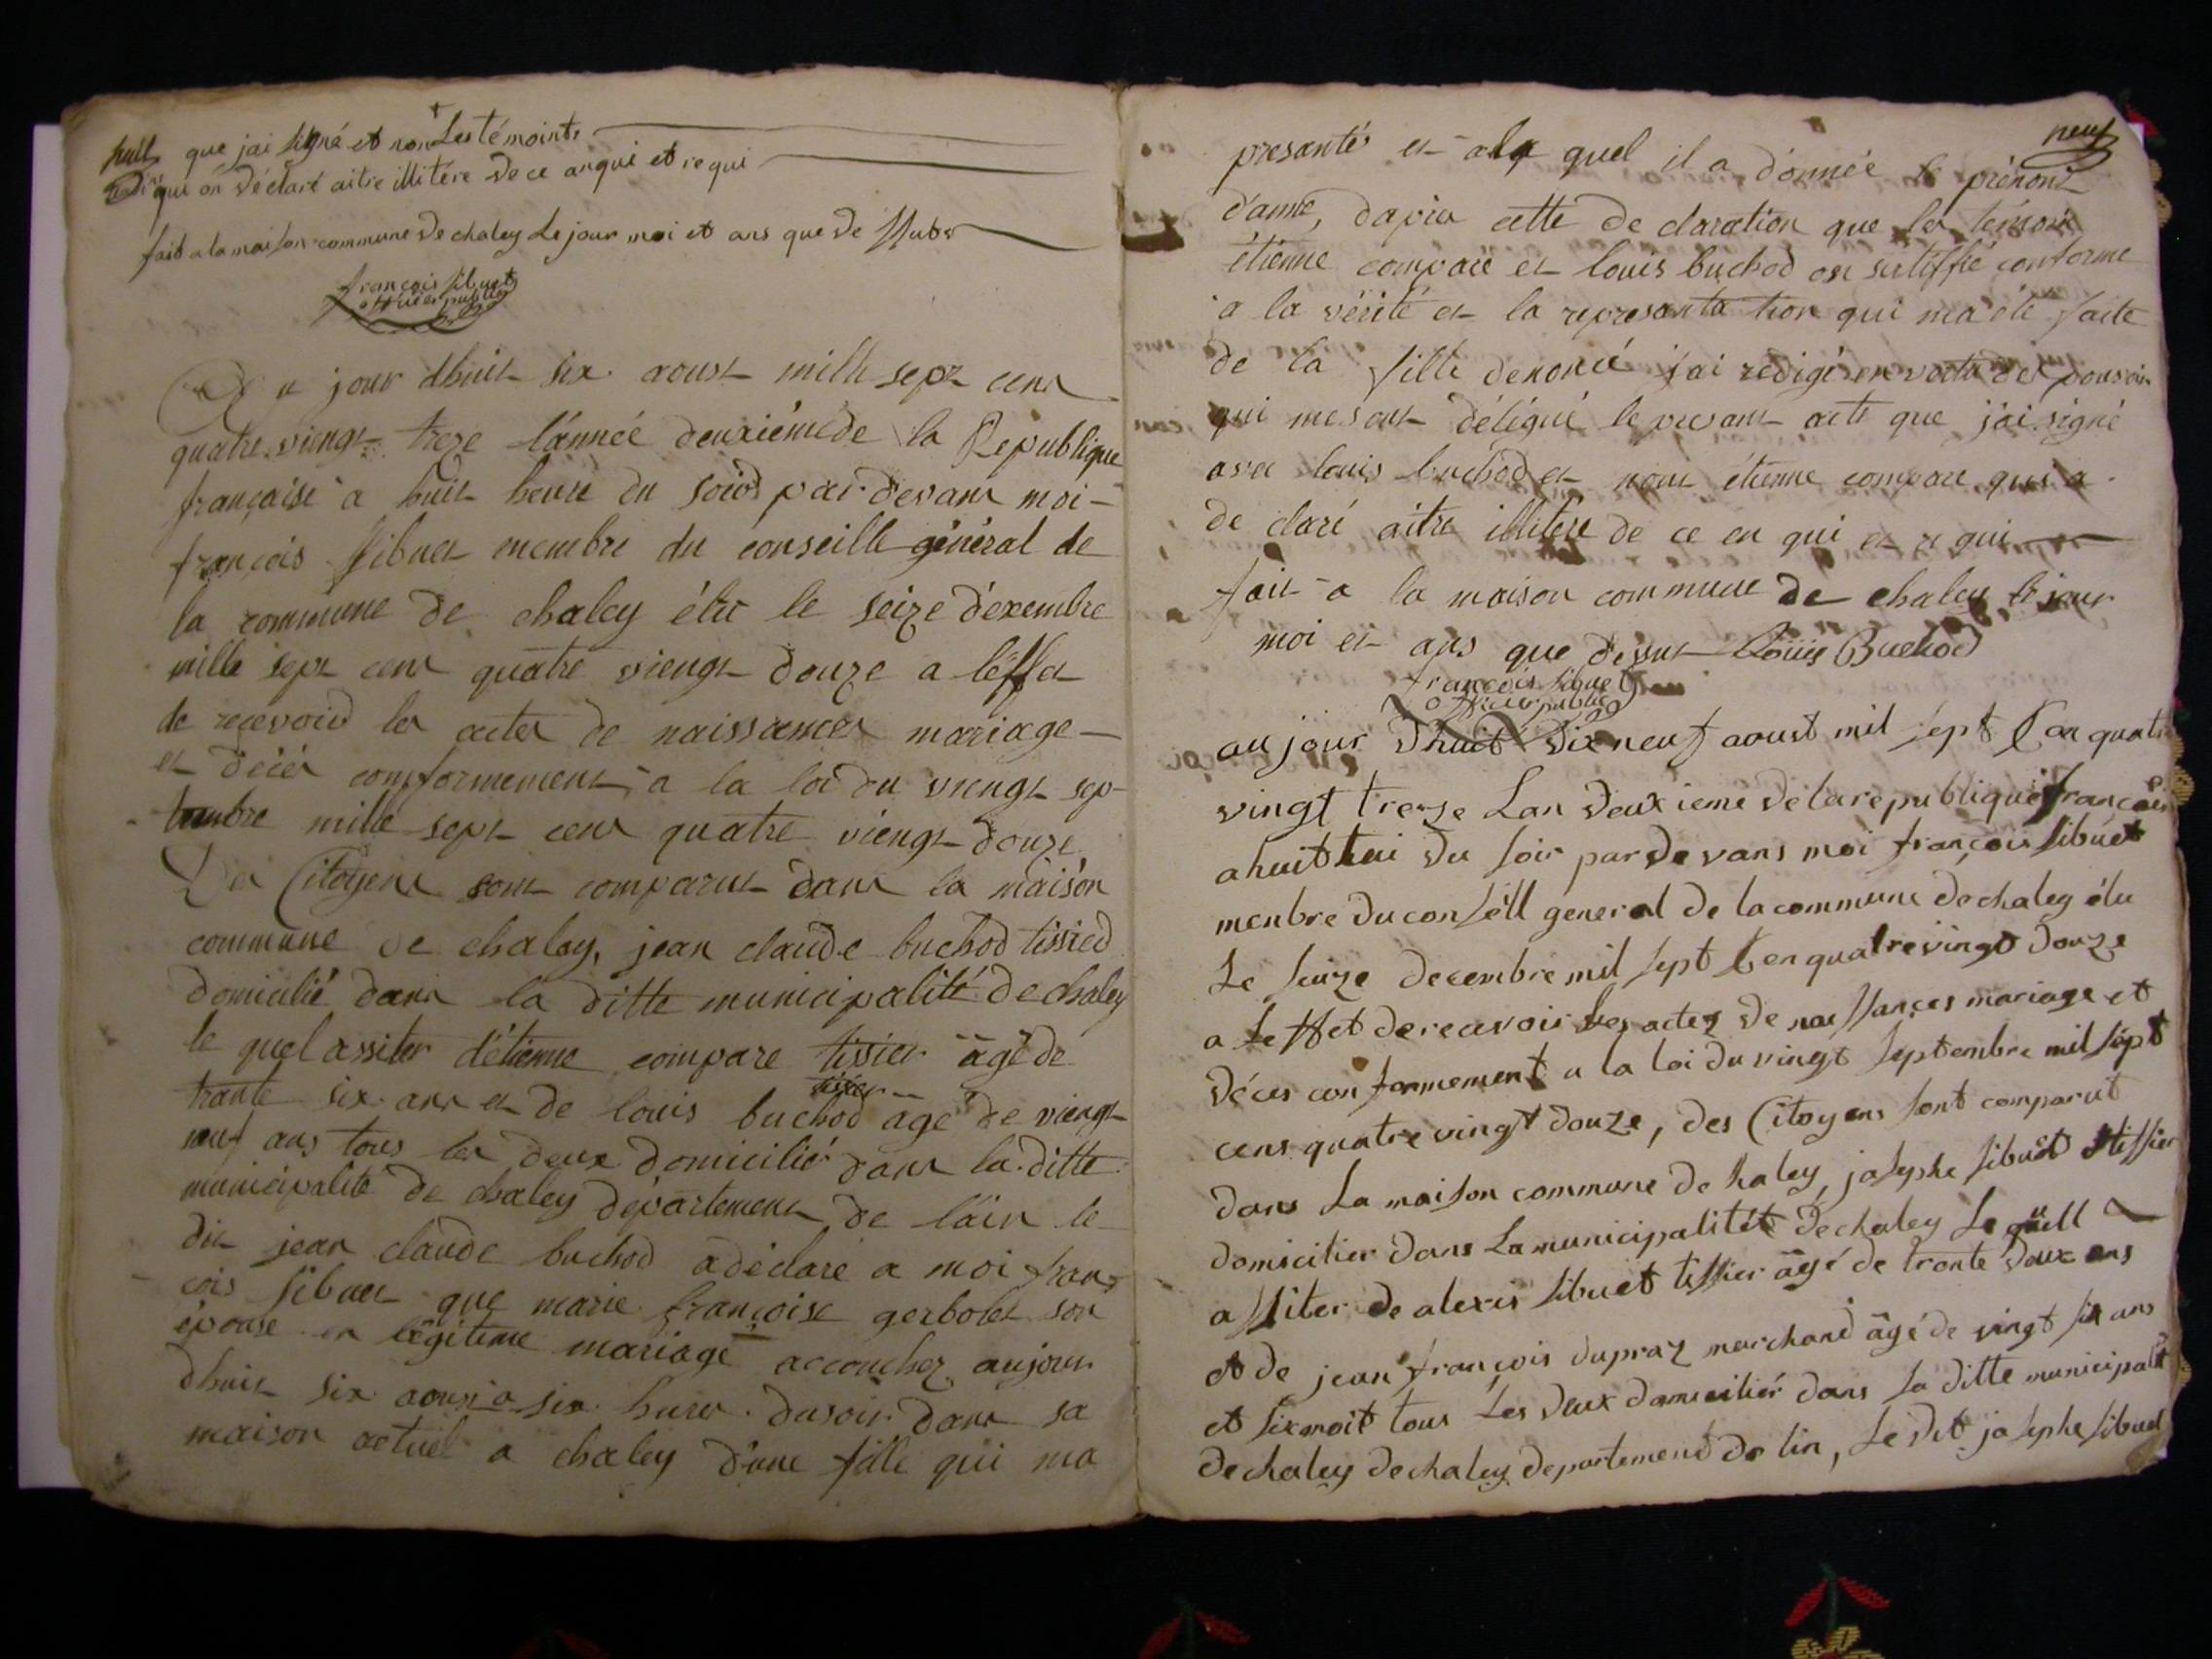 huit
que jai signé et non Les témoints
qui on déclaré aitre illitére de ce anquis et requi
fait a la maison commune de chaley Le jour moi et ans que de ssubs
françois sibuet
officier public
Du jour dhuit six aoust mille sept cent
quatre viengt treze l'année deuxiéme de la Republique
française a huit heure du soird par devant moi -
françois sibuet membre du conseille général de
la commune de chaley élut le seize déxembre
mille sept cent quatre viengt douze a léffet
de recevoird les actes de naissances mariage -
et décés comformement a la loi du viengt sep-
tembre mille sept cent quatre viengt douze
Des Citoyens sont comparut dans la maison
commune de chaley, jean claude buchod tissied
domicilié dans la ditte municipalité de chaley
le quel assiter d'étienne compare tissier âgé de
trante six ans et de louis buchod tissier âgé de viengt
neuf ans tous les deux domicilié dans la ditte
municipalité de chaley département de l'ain le
dit jean claude buchod a déclaré a moi fran-
çois sibuet que marie françoise gerbolet son
épouse en légitime mariage accouchez aujour
dhuit six aoust a six hures du soir dans sa
maison actuel a chaley d'une fille qui ma
neuf
presanté et a la quel il a donnée le prénont
d'anne, d'apres cette de claration que les témoin
étienne compare et louis buchod on sertiffié conforme
a la vérité et la represantation qui ma été faite
de la fille denoncé j'ai redigé en vertu des pouvoir
qui me sont délégué le presant acte que j'ai signé
avec louis buchod et nont étienne compare qui a
de claré aitre illitére de ce en qui et re qui
fait a la maison commune de chaley le jour
moi et ans que dessut Loüis Buchod
françois sibuet
officier public
au jour dhuit dix neuf aoust mil sept Can quatre
vingt treize Lan deuxieme de la republique francais
a huit heui du soir par de vans moi françois sibuet
menbre du conséll general de la commune de chaley élu
Le seize decembre mil sept cen quatre vingt douze
a Leffet de recevoir Les actes de naissançes mariage et
déces confarmement a la loi du vingt septembre mil sépt
cens quatre vingt douze, des Citoyens sont comparut
dans La maison commune de haley, josephe sibuet tissier
domicitier dans La municipalitét de chaley Le quell
assiter de alexis sibuet tissier âgé de tronte deux ans
et de jean françois dupraz marchand âgé de vingt six ans
et six moit tous Les deux domicitiér dans La ditte municipalit
de chaley de chaley departement de lin, Le dit josephe sibuet